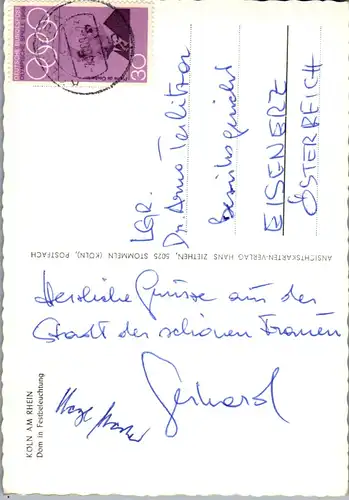 DEUTSCHE BUNDESPOST
30
LGR.
Dr. Arno
Bezirksgericht
EISENERZ
ÖSTERREICH
ANSICHTSKARTEN-VERLAG HANS ZIETHEN, 5025 STOMMELN (KÖLN), POSTFACH
Herzliche Grüsse aus der
Stadt der schönen Frauen
Gerhard
KÖLN AM RHEIN
Dom in Festbeleuchtung